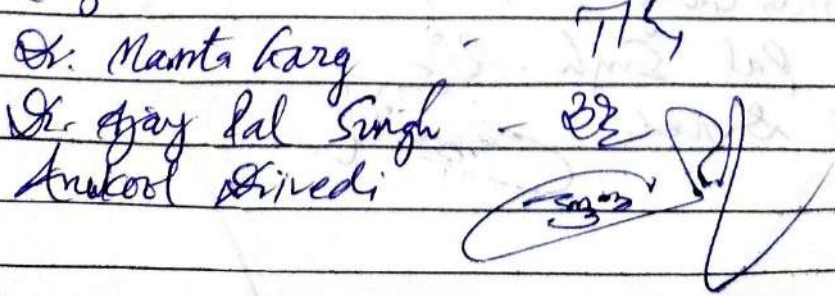 Dr. Mamta Garg -
Dr. Ajay Pal Singh -
Anukool Drivedi